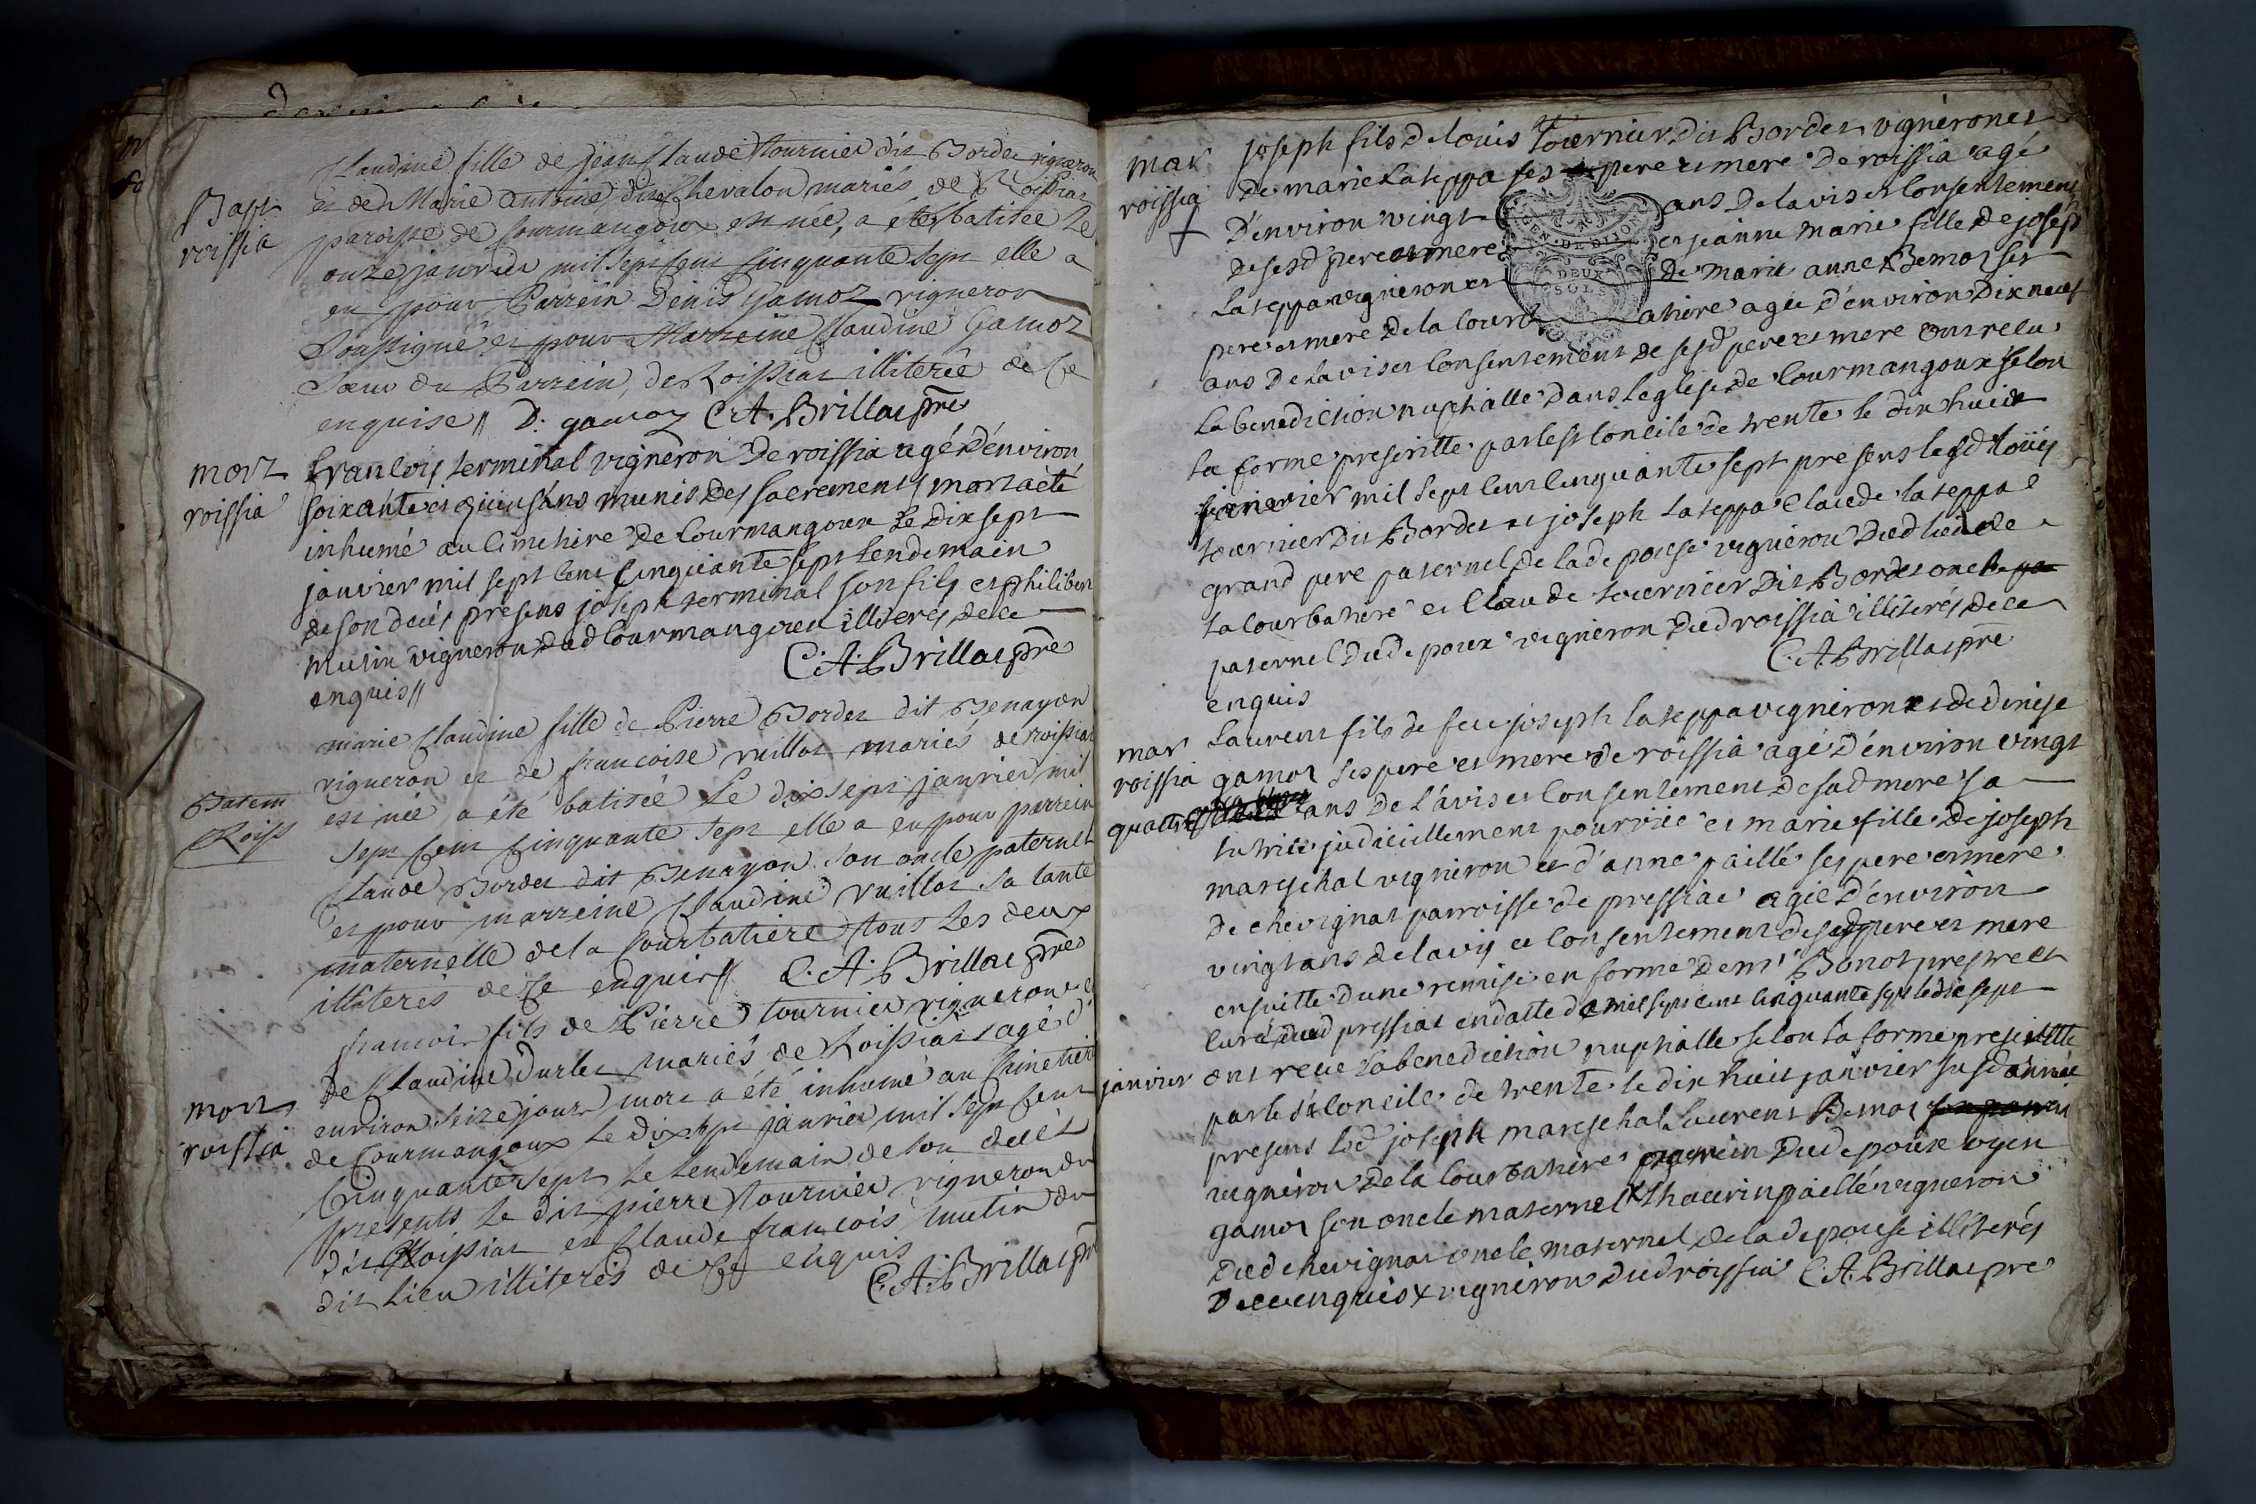 Bapt
roissia
Claudine fille de jean Claude tournier dit Bordet vigneron
et de Marie Antoine dit Chevalon mariés de Roissiat
paroisse de Courmangoux est née, a été batisée Le
onze janvier mil sept Cent Cinquante sept elle a
eu pour Parrein Denis Gamoz vigneron
Soussigné et pour Marreine Claudine Gamoz
Sœur du Parrein, de Roissiat illiterée de Ce
enquise // D. gamoz C.A. Brillat prê
mort
roissia
francois terminal vigneron De roissia agé D'environ
soixante et ans munis des sacrements mort a été
inhumé au Cimetiere De Courmangoux Le Dix sept
janvier mil sept Cent Cinquante sept Lendemain
de son decés presens joseph terminal son fils et philibert
mutin vigneron Dud Courmangoux illiterés de ce
enquis // C.A. Brillat prê
Batem
Roiss
marie Claudine fille de Pierre Bordet dit Benayon
vigneron et de francoise vuillot mariés de roissiat
est née a été batisée Le dix sept janvier mil
sept Cent Cinquante sept elle a eu pour parrein
Claude Bordet dit Benayon son oncle paternel
et pour marreine Claudine Vuillot sa tante
maternelle de la Courbatiere tous Les deux
illiterés de Ce enquis // C.A. Brillat prê
mort
roissia
francois fils de Pierre tournier vigneron et
de Claudine Durlet mariés de Roissiat agé d'
environ seize jours mort a été inhumé au Cimetiere
de Courmangoux Le dix sept janvier mil sept Cent
Cinquante sept Le Lendemain de son decés
presents Le dit pierre tournier vigneron du
dit Roissiat et Claude francois mutin du
dit Lieu illiterés de Ce enquis
C.A. Brillat pr
mar
roissia
+
joseph fils De louis Tournier Dit Bordet vigneron et
De marie Lateppa ses pere et mere De roissia agé
D'environ vingt ans De lavis et Consentement
de sesd pere et mere et jeanne marie fille De joseph
Lateppa vigneron et De marie anne Bemoz ses
pere et mere De la Courbatiere agée d'environ Dix neuf
GEN. DE DIJON
DEUX
SOLS
ans De lavis et Consentement de sesd pere et mere ont recu
La benediction nuptialle Dans leglise De Courmangoux selon
la forme prescritte par le st Concile de trente le dix huit
janvier mil sept Cent Cinquante sept presens lesd louis
tournier Dit Bordet et joseph Lateppa Claude Lateppa
grand pere paternel de lad epouse vigneron Dud lieu de
la Courbatiere et Claude tournier Dit Bordet oncle
paternel Dud epoux vigneron Dud roissia illiterés de ce
enquis C.A. Brillat prê
mar
roissia
Laurent fils de feu joseph lateppa vigneron et de Denise
gamoz ses pere et mere De roissia agé D'environ vingt
quattre ans De l'avis et Consentement De sad mere sa
tutrice judiciellement pourvue et marie fille De joseph
mareschal vigneron et d'anne paillé ses pere et mere
De chevignat parroisse de pressiat agée D'environ
vingt ans De lavis et Consentement de sesd pere et mere
ensuitte dune remise en forme De mr Bonot prestre et
Curé Dud pressiat en datte de mil sept cent cinquante sept le dix sept
janvier ont recue la benediction nuptialle selon la forme prescritte
par le st Concile de trente le dix huit janvier susd année
presens led joseph mareschal Laurent Bemoz
vigneron De la Courbatiere parrein Dud epoux oyen
gamoz son oncle maternel x thaurin paillé vigneron
Dud chevignat oncle maternel De lad epouse illiterés
De ce enquis x vigneron Dud roissia C.A. Brillat pre